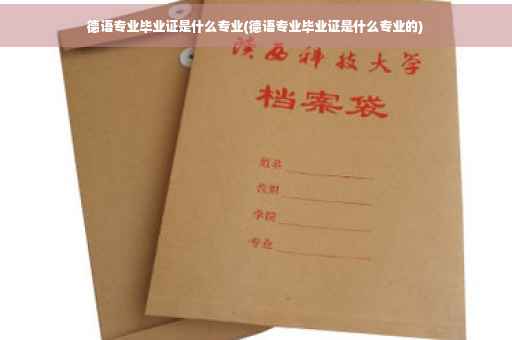 德语专业毕业证是什么专业(德语专业毕业证是什么专业的)
陕西科技大学
档案袋
姓名
学院
专业